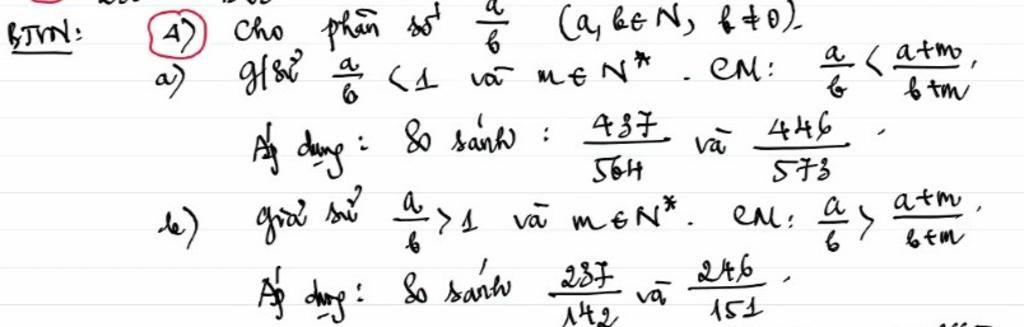 BTVN: 4) Cho phân số a/b (a, b ∈ N, b ≠ 0).
a) G/sử a/b < 1 và m ∈ N*. CM: a/b < (a+m)/(b+m).
Áp dụng: So sánh: 437/564 và 446/573.
b) Giả sử a/b > 1 và m ∈ N*. CM: a/b > (a+m)/(b+m).
Áp dụng: So sánh 237/142 và 246/151.